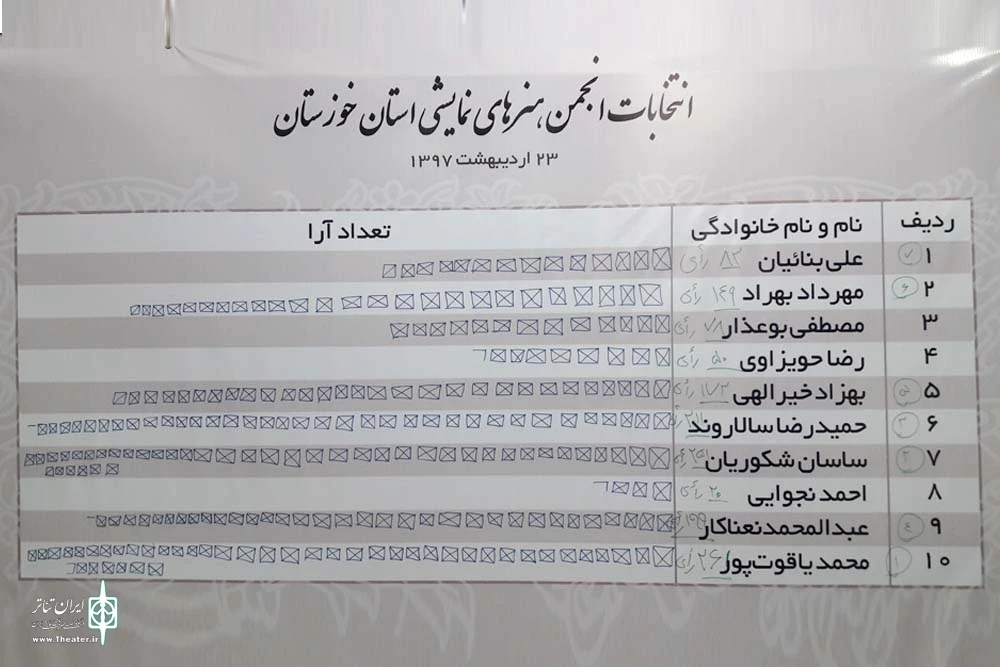 انتخابات انجمن هنرهای نمایشی استان خوزستان
۲۳ اردیبهشت ۱۳۹۷
ردیف نام و نام خانوادگی تعداد آرا
۱ علی بنائیان ۸۲ رأی
۲ مهرداد بهراد ۱۴۹ رأی
۳ مصطفی بوعذار ۷۸ رأی
۴ رضا حویزاوی ۵۰ رأی
۵ بهزاد خیرالهی رأی
۶ حمیدرضا سالاروند
۷ ساسان شکوریان رأی
۸ احمد نجوایی ۲۰ رأی
۹ عبدالمحمد نعناکار رأی
۱۰ محمد یاقوت‌پور ۲۶۱ رأی
ایران تئاتر
www.Theater.ir